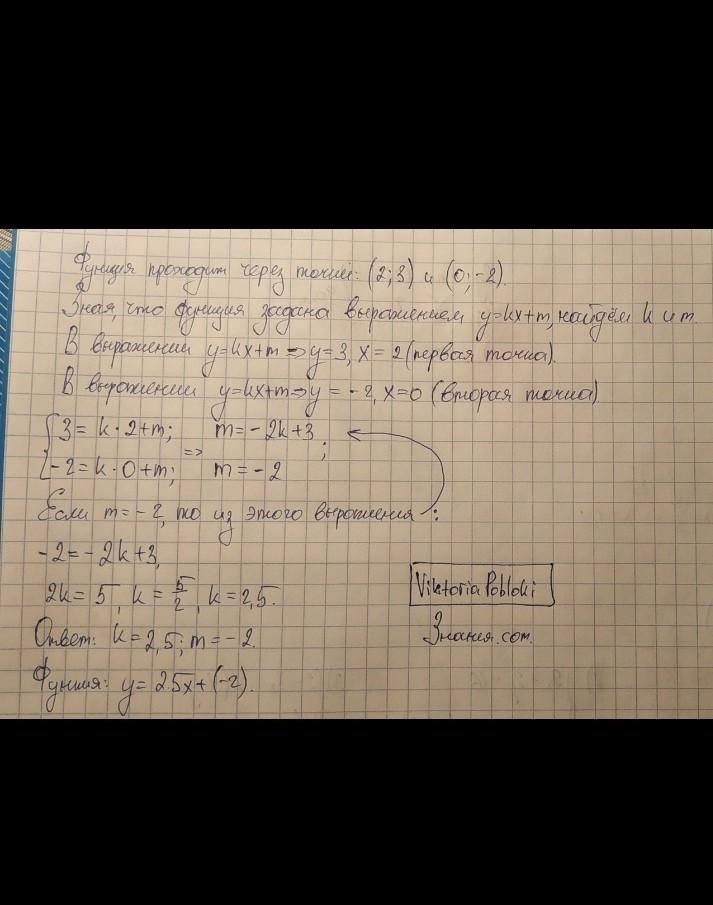 Функция проходит через точки: (2;3) и (0;-2).
Зная, что функция задана выражением y=kx+m, найдём k и m.
В выражении y=kx+m => y=3, x=2 (первая точка).
В выражении y=kx+m => y=-2, x=0 (вторая точка)
{ 3=k·2+m; => m=-2k+3 ;
{ -2=k·0+m; m=-2
Если m=-2, то из этого выражения:
-2=-2k+3,
2k=5, k=5/2, k=2,5.
Viktoria Pobloki
Ответ: k=2,5; m=-2.
Знания.com.
Функция: y=2.5x+(-2).